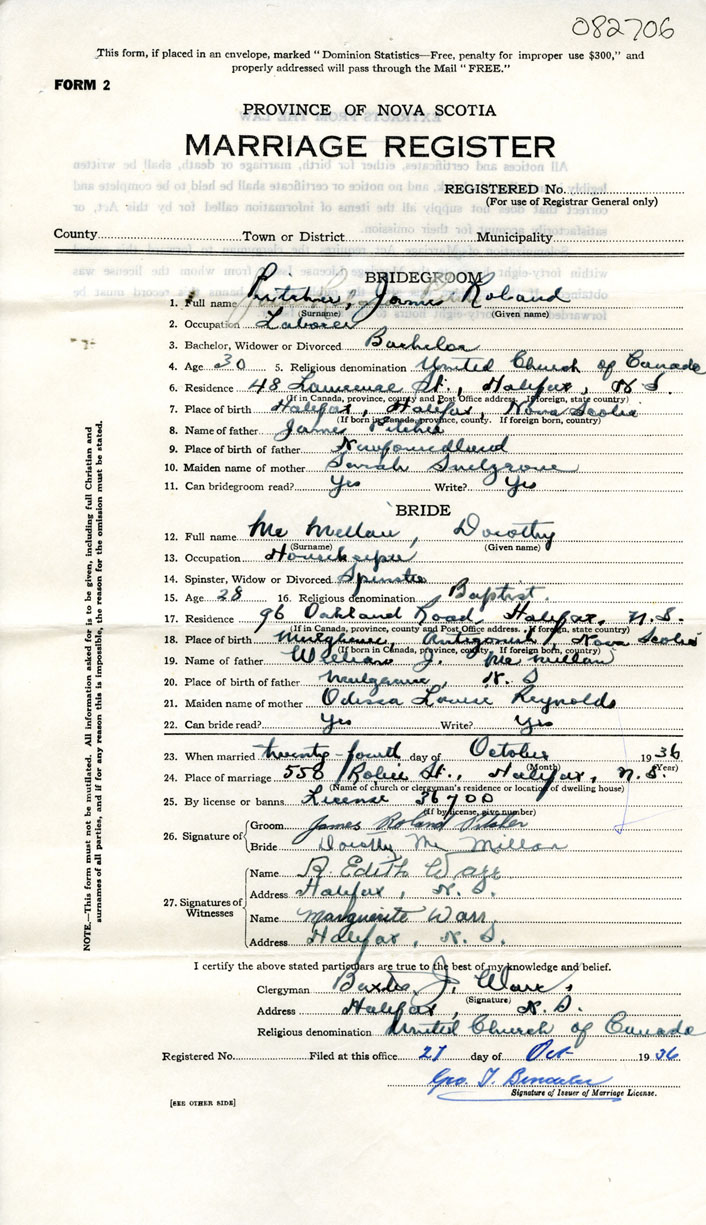 082706
This form, if placed in an envelope, marked "Dominion Statistics—Free, penalty for improper use $300," and
properly addressed will pass through the Mail "FREE."
FORM 2
PROVINCE OF NOVA SCOTIA
MARRIAGE REGISTER
REGISTERED No.
(For use of Registrar General only)
County Town or District Municipality
BRIDEGROOM
1. Full name James Roland
(Surname) (Given name)
2. Occupation Laborer
3. Bachelor, Widower or Divorced Bachelor
4. Age 30 5. Religious denomination United Church of Canada
6. Residence 48 Lawrence St., Halifax, N.S.
(If in Canada, province, county and Post Office address. If foreign, state country)
7. Place of birth Halifax, Halifax, Nova Scotia
(If born in Canada, province, county. If foreign born, country)
8. Name of father James
9. Place of birth of father Newfoundland
10. Maiden name of mother Sarah Snelgrove
11. Can bridegroom read? Yes Write? Yes
BRIDE
12. Full name Mc Millan, Dorothy
(Surname) (Given name)
13. Occupation Housekeeper
14. Spinster, Widow or Divorced Spinster
15. Age 28 16. Religious denomination Baptist.
17. Residence 96 Oakland Road, Halifax, N.S.
(If in Canada, province, county and Post Office address. If foreign, state country)
18. Place of birth Mulgrave, Antigonish, Nova Scotia
(If born in Canada, province, county. If foreign born, country)
19. Name of father William J. McMillan
20. Place of birth of father Mulgrave, N.S
21. Maiden name of mother Odessa Louise Reynolds
22. Can bride read? Yes Write? Yes
23. When married twenty-fourth day of October 1936
(Month) (Year)
24. Place of marriage 558 Robie St., Halifax, N.S.
(Name of church or clergyman's residence or location of dwelling house)
25. By license or banns. License 36700
(If by license, give number)
26. Signature of Groom James Roland
Bride Dorothy Mc Millan
27. Signatures of Witnesses
Name R. Edith Warr
Address Halifax, N.S.
Name Marguerite Warr
Address Halifax, N.S.
I certify the above stated particulars are true to the best of my knowledge and belief.
Clergyman J. Warr
(Signature)
Address Halifax, N.S.
Religious denomination United Church of Canada
Registered No. Filed at this office 27 day of Oct 1936
Geo. T.
Signature of Issuer of Marriage License.
[SEE OTHER SIDE]
NOTE.—This form must not be mutilated. All information asked for is to be given, including full Christian and
surnames of all parties, and if for any reason this is impossible, the reason for the omission must be stated.